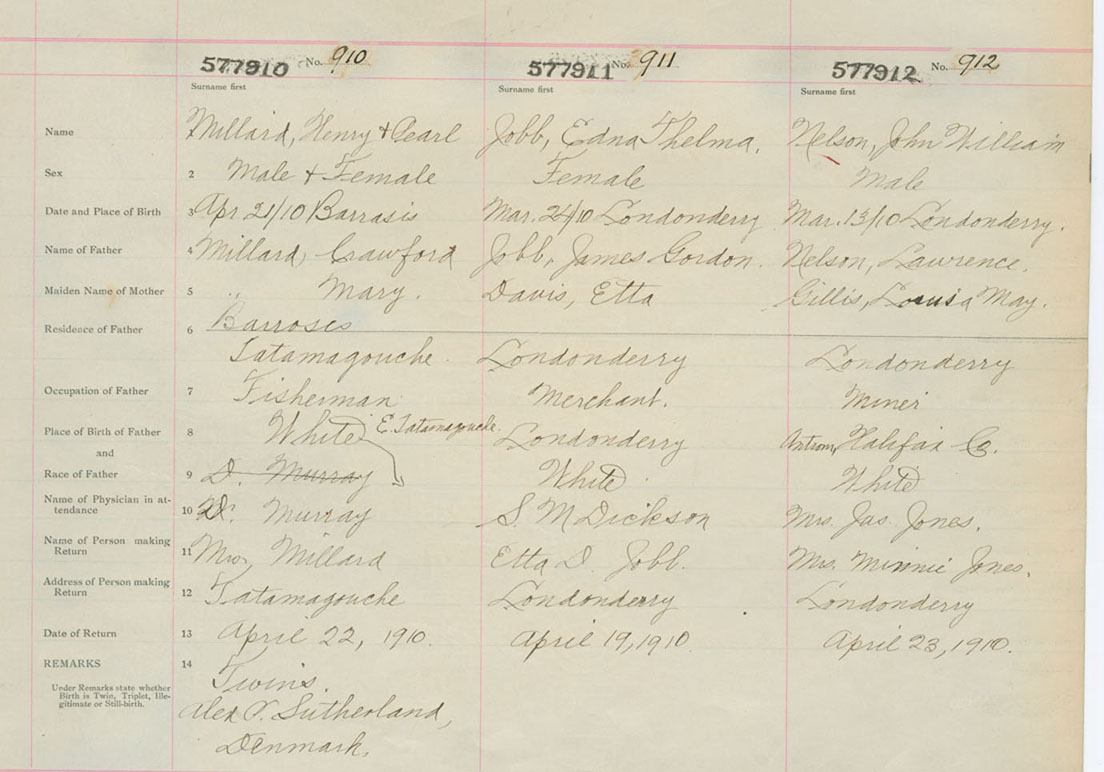 577910 No. 910 577911 No. 911 577912 No. 912
Surname first Surname first Surname first
Name Millard, Henry + Pearl Jobb, Edna Thelma. Nelson, John William
Sex 2 Male + Female Female Male
Date and Place of Birth 3 Apr 21/10 Barrasis Mar. 24/10 Londonderry Mar. 13/10 Londonderry.
Name of Father 4 Millard, Crawford Jobb, James Gordon. Nelson, Lawrence.
Maiden Name of Mother 5 " Mary. Davis, Etta Gillis, Louisa May.
Residence of Father 6 Barroses
Tatamagouche. Londonderry Londonderry
Occupation of Father 7 Fisherman Merchant. Miner
Place of Birth of Father 8 White E. Tatamagouche. Londonderry Halifax Co.
and
Race of Father 9 D. Murray White White
Name of Physician in at-
tendance 10 D. Murray S. M Dickson Mrs. Jas. Jones.
Name of Person making
Return 11 Mrs. Millard Etta D. Jobb. Mrs. Minnie Jones.
Address of Person making
Return 12 Tatamagouche Londonderry Londonderry
Date of Return 13 April 22, 1910. April 19, 1910 April 23, 1910.
REMARKS 14 Twins.
Under Remarks state whether
Birth is Twin, Triplet, Ille-
gitimate or Still-birth.
Alex P. Sutherland,
Denmark.